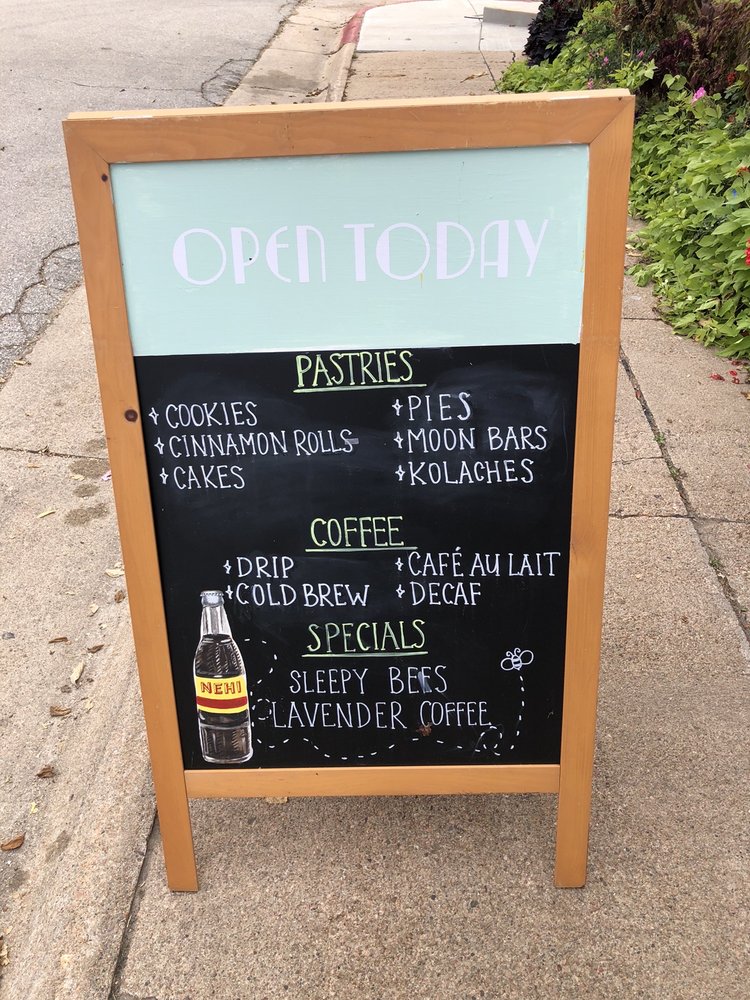 OPEN TODAY
PASTRIES
COOKIES
CINNAMON ROLLS
CAKES
PIES
MOON BARS
KOLACHES
COFFEE
DRIP
COLD BREW
CAFÉ AU LAIT
DECAF
SPECIALS
SLEEPY BEES
LAVENDER COFFEE
NEHI